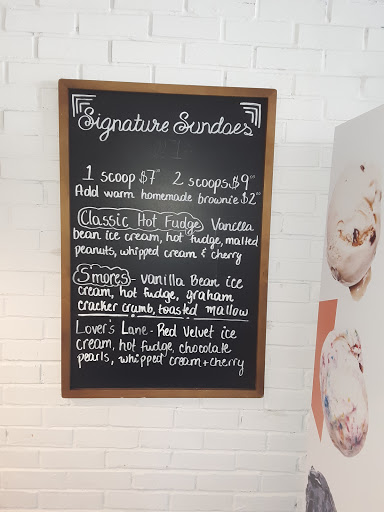 Signature Sundaes
1 scoop $7⁰⁰ 2 scoops $9⁰⁰
Add warm homemade brownie $2⁰⁰
Classic Hot Fudge Vanilla
bean ice cream, hot fudge, malted
peanuts, whipped cream & cherry
S'mores - Vanilla Bean ice
cream, hot fudge, graham
cracker crumb, toasted mallow
Lover's Lane - Red Velvet ice
cream, hot fudge, chocolate
pearls, whipped cream + cherry